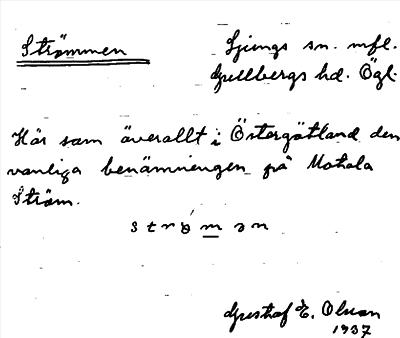 Strömmen
Ljungs sn. mfl.
Gullbergs hd. Ögl.
Här som överallt i Östergötland den
vanliga benämningen på Motala
Ström.
strömən
Gusthaf E. Olson
1937